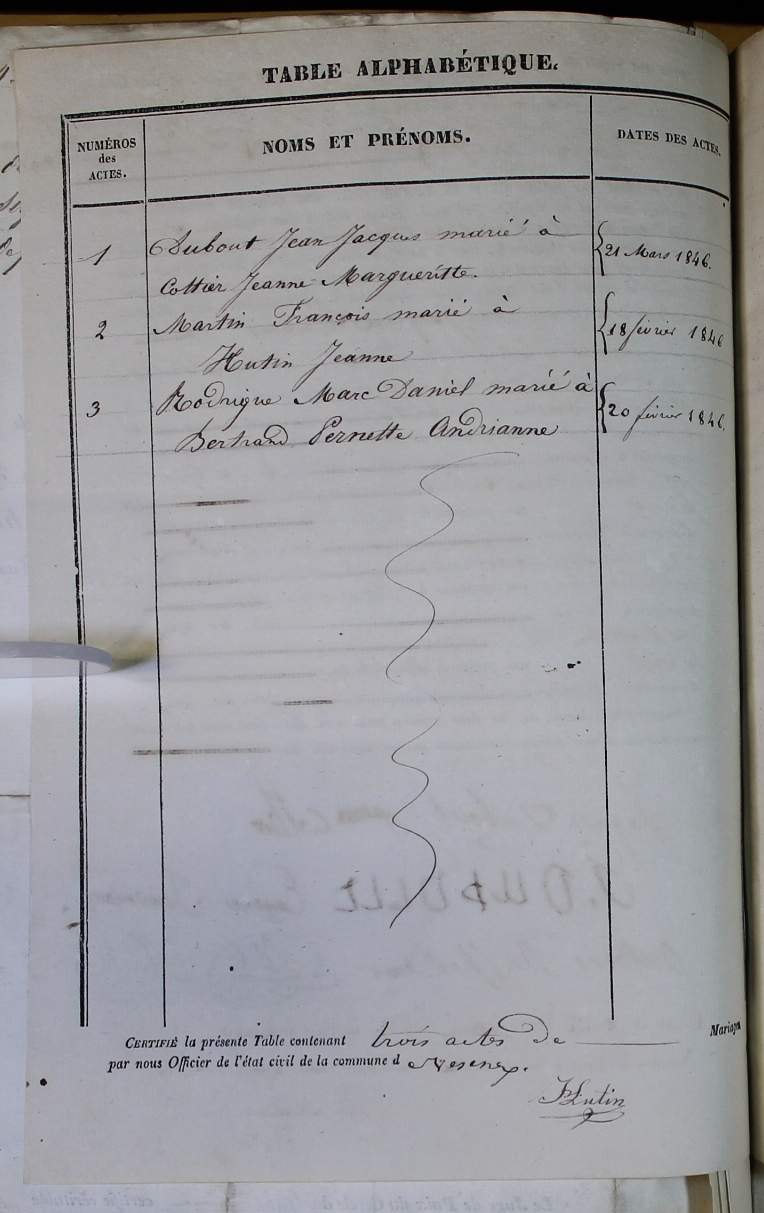 TABLE ALPHABÉTIQUE.
NUMÉROS
des
ACTES.
NOMS ET PRÉNOMS.
DATES DES ACTES.
1
Dubout Jean Jacques marié à
Cottier Jeanne Margueritte.
21 Mars 1846.
2
Martin François marié à
Hutin Jeanne
18 février 1846
3
Rodrigue Marc Daniel marié à
Bertrand Pernette Andrianne
20 février 1846.
CERTIFIÉ la présente Table contenant trois actes de Mariages
par nous Officier de l'état civil de la commune d